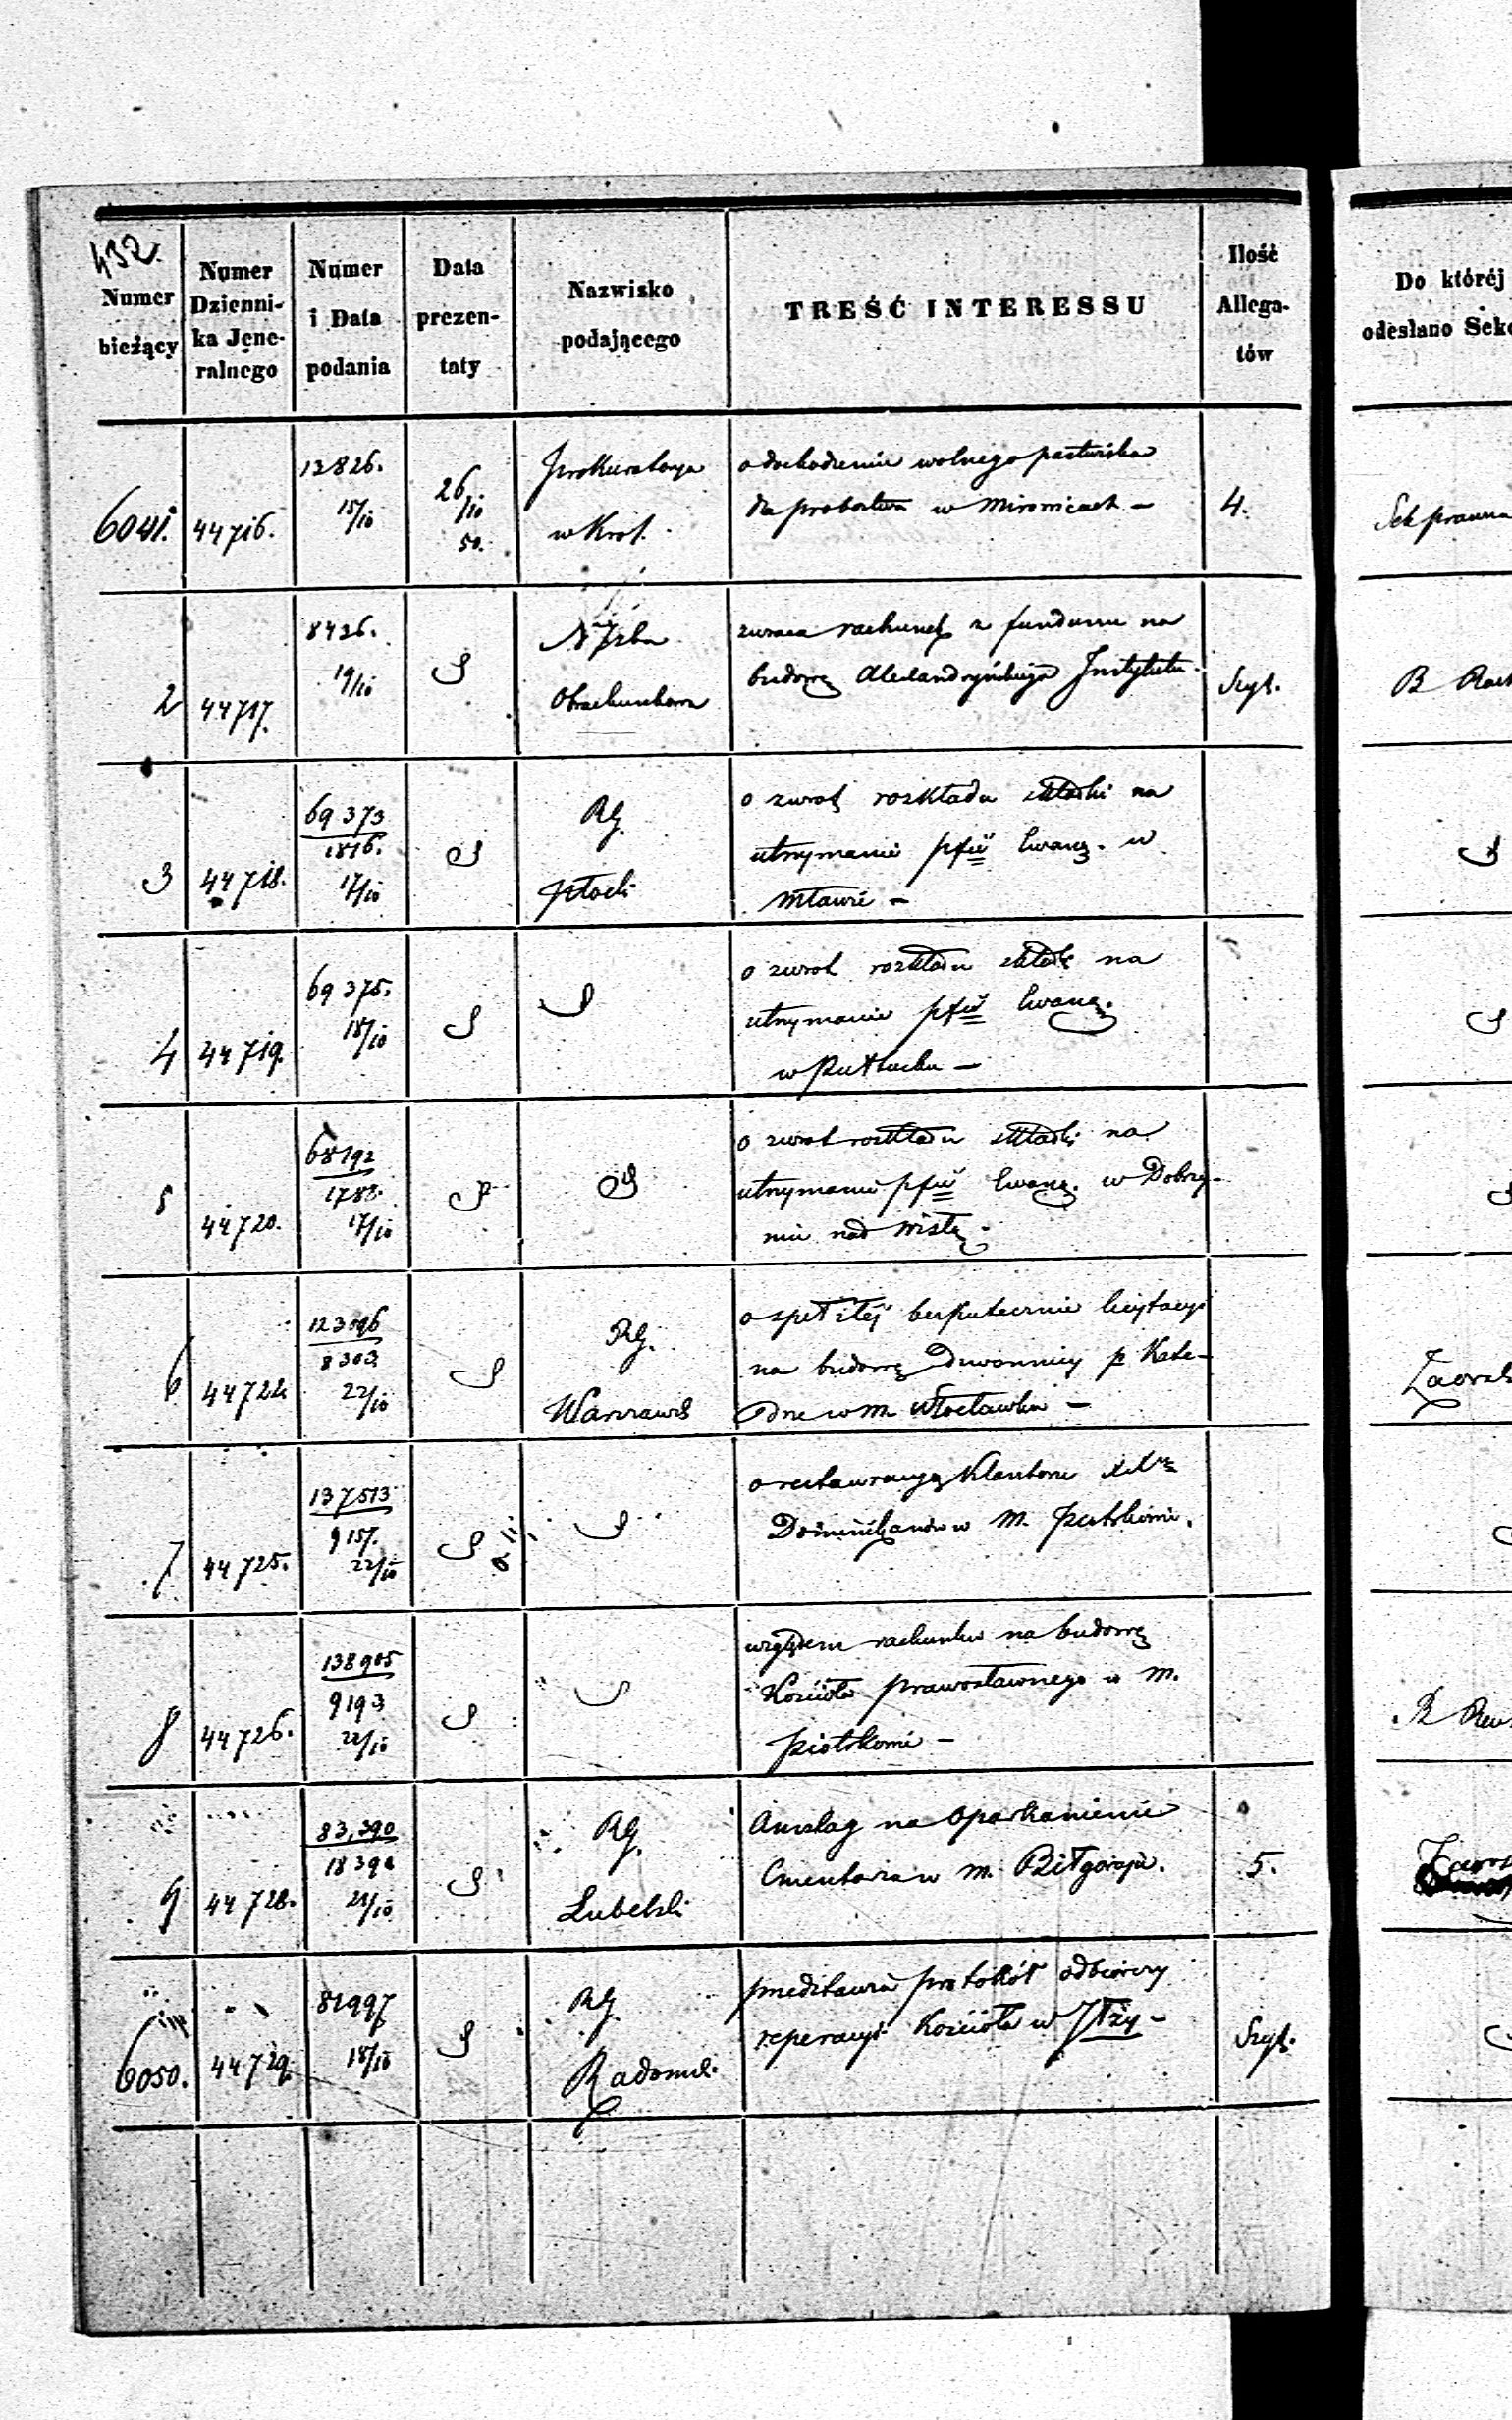 432.
Numer bieżący
Numer Dziennika Jeneralnego
Numer i Data podania
Data prezentaty
Nazwisko podającego
TREŚĆ INTERESSU
Ilość Allegatów
Do któréj
odesłano Sek
6041. 44716. 12826. 15/10 26/10 50. Prokuratorya w Król.
o dochodzeniu wolnego pastwiska
dla probostwa w Mironicach - 4.
Sek prawna
2 44717. 8426. 19/10 S Izba Obrachunkowa
zwraca rachunek z funduszu na
budowę Alexandryjskiego Instytutu. Szyt.
3 44718. 69373 1816. 17/10 S RG. Płocki
o zwrot rozkładu składki na
utrzymanie pfii Ewang. w
Mławie -
4 44719. 69375. 18/10 S S
o zwrot rozkładu składki na
utrzymanie pfii Ewang.
w Pułtusku -
5 44720. 68192 1788. 17/10 S S
o zwrot rozkładu składki na
utrzymanie pfii Ewang. w Dobrzy-
niu nad Wisłą.
6 44722 123096 8303. 22/10 S RG. Warszaws
o spełzłéj bezskutecznie licytacyi
na budowę Dzwonnicy p. Kate-
drze w m. Włocławku -
7 44725. 137513 9157. 22/10 S S
o restauracyę Klasztoru XX
Dominikanów w M. Piotrkowie.
8 44726. 138905 9193 22/10 S S
względem rachunków na budowę
Kościoła prawosławnego w M.
Piotrkowie -
9 44728. 83,390 18390 21/10 S RG. Lubelski
Anszlag na oparkanienie
Cmentarza w m. Biłgoraju. 5.
6050. 44729. 81997 18/10 S RG. Radomsk.
przedstawia protokół odbiorczy
reperacyi Kościoła w Iłży - Szyt.